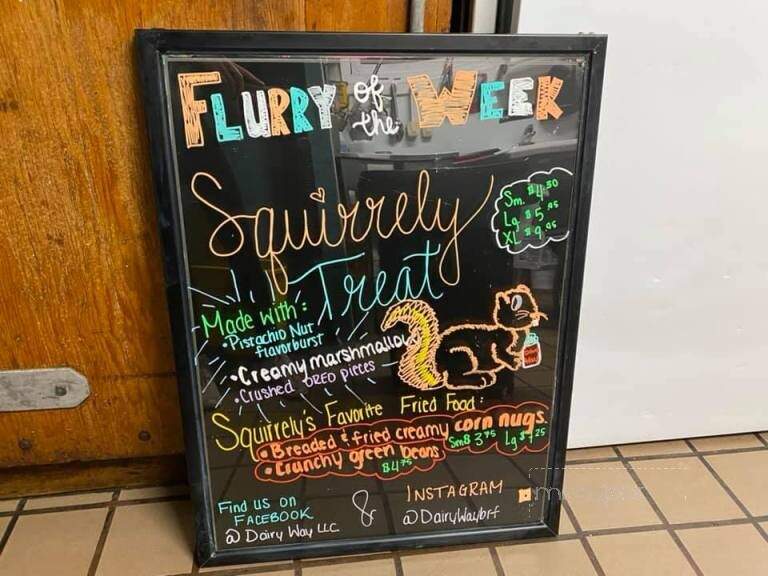 FLURRY of the WEEK
Squirrely
Treat
Sm. $4.50
Lg $5.95
XL $9.95
Made with:
•Pistachio Nut
flavorburst
•Creamy marshmallow
•Crushed OREO pieces
Squirrely's Favorite Fried Food:
•Breaded & fried creamy corn nugs
Sm $3.75 Lg $7.25
•Crunchy green beans
$4.75
Find us on
FACEBOOK
@ Dairy Way LLC.
&
INSTAGRAM
@DairyWaybrf